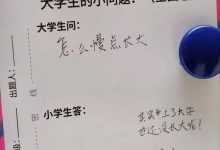 大学生的小问题：
大学生问：
怎么慢点长大
出题人：
线
小学生答：
其实上了大学
也还没长大呢！